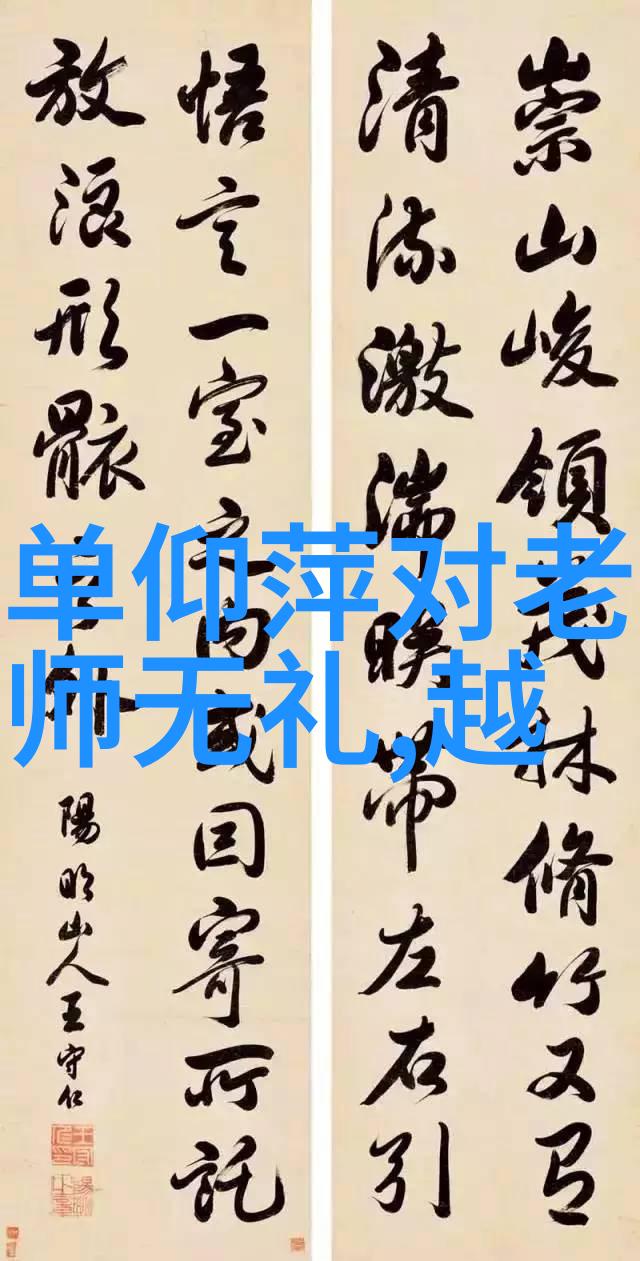 崇山峻領茂林脩竹又有
清流激湍暎帶左右引
悟言一室之内或因寄所託
放浪形骸之外
陽明山人王守仁
单仰萍对老
师无礼,越